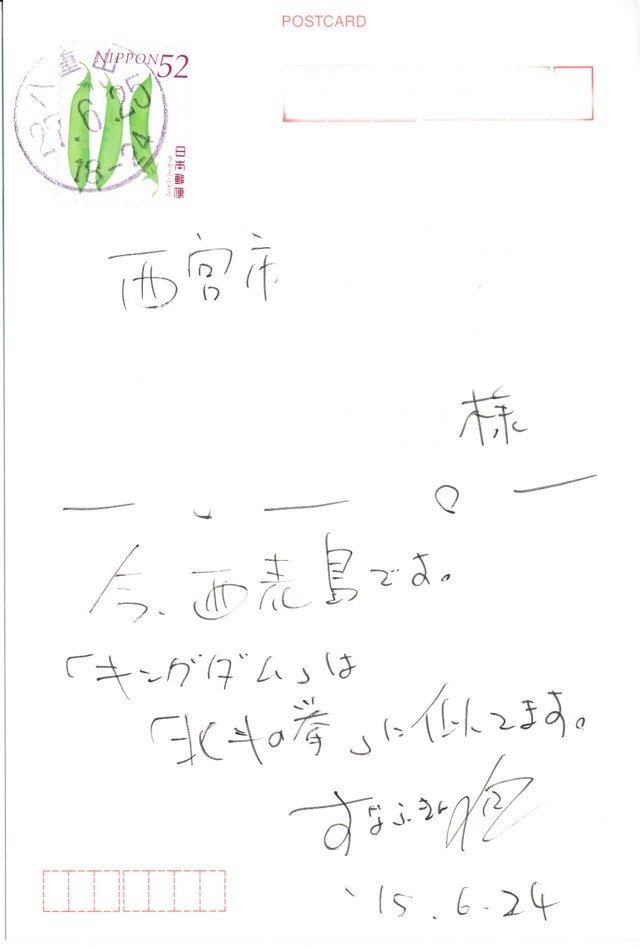 POSTCARD
NIPPON 52
日本郵便
27.6.25
18-24
西宮市
様
今、西表島です。
「キングダム」は
「北斗の拳」に似てます。
すなふきん
'15.6.24